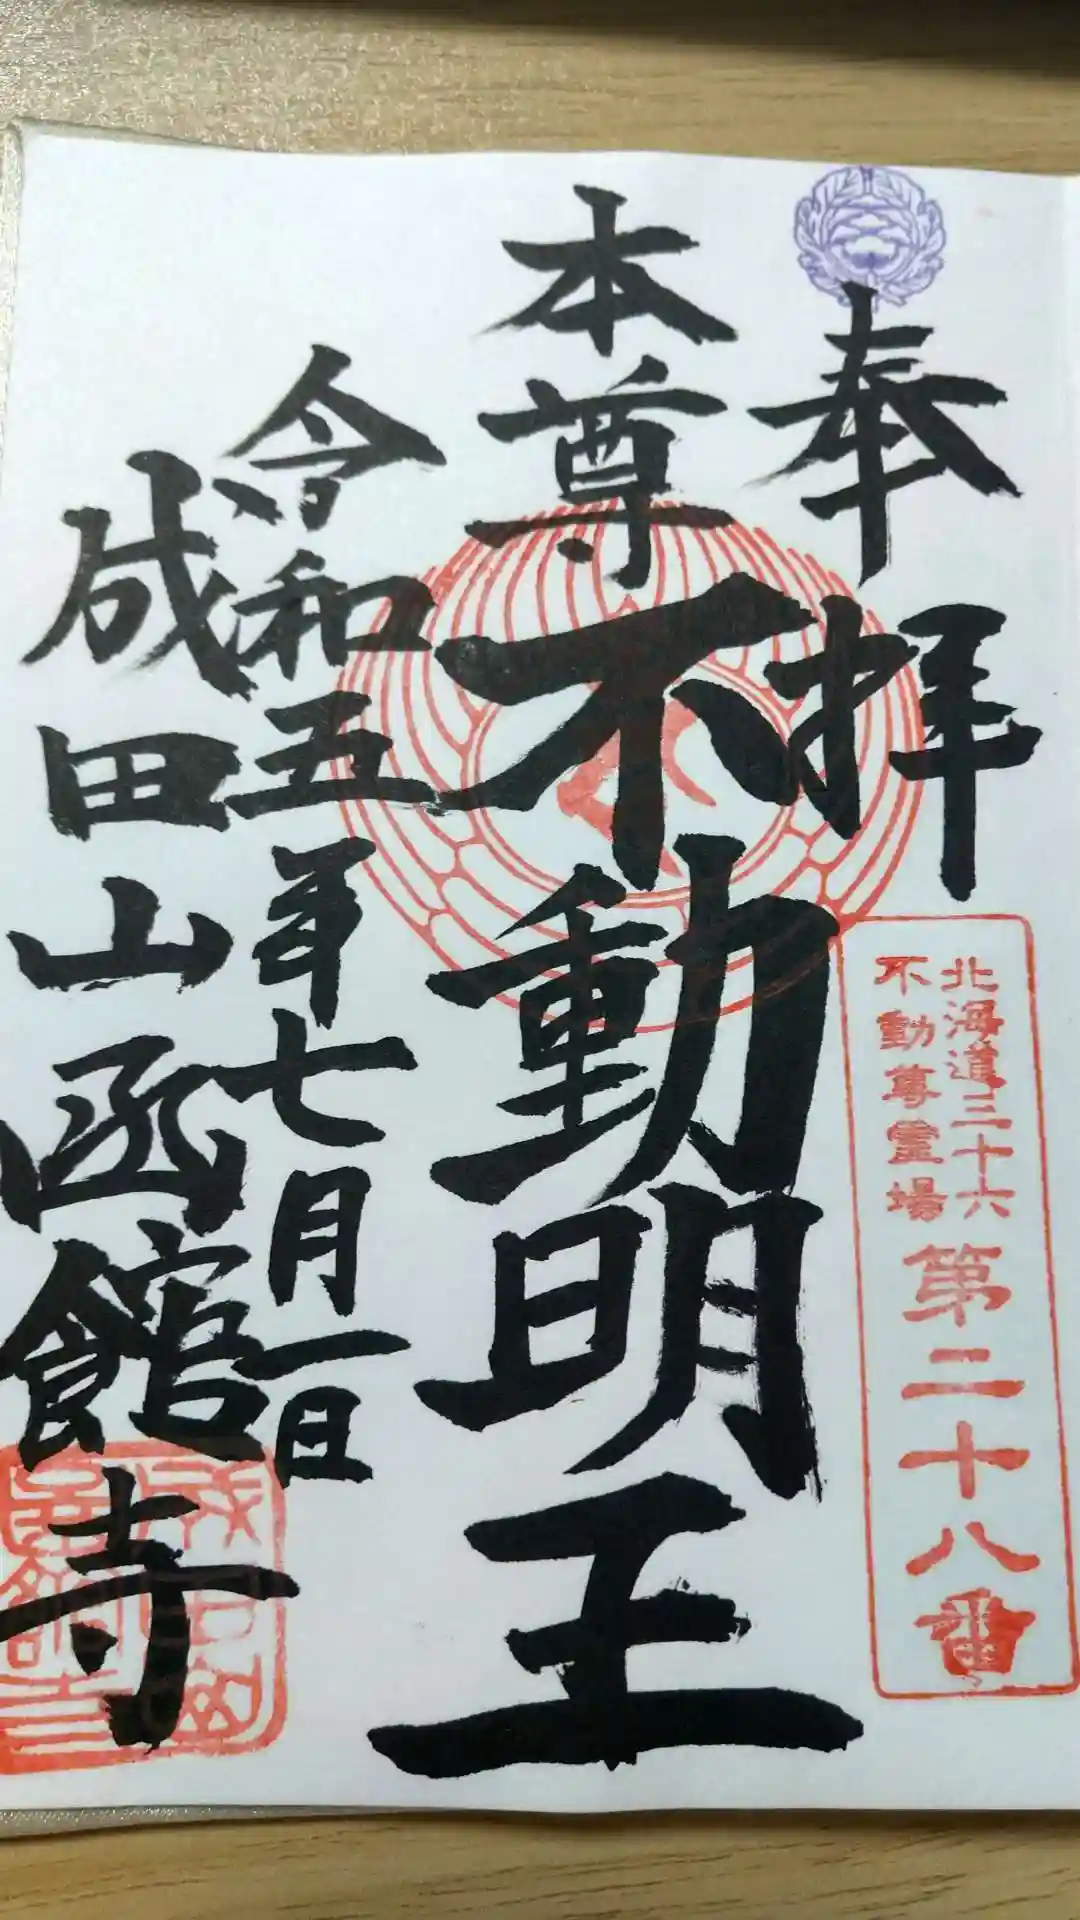 奉拝
北海道三十六
不動尊霊場
第二十八番
本尊不動明王
令和五年七月一日
成田山函館寺